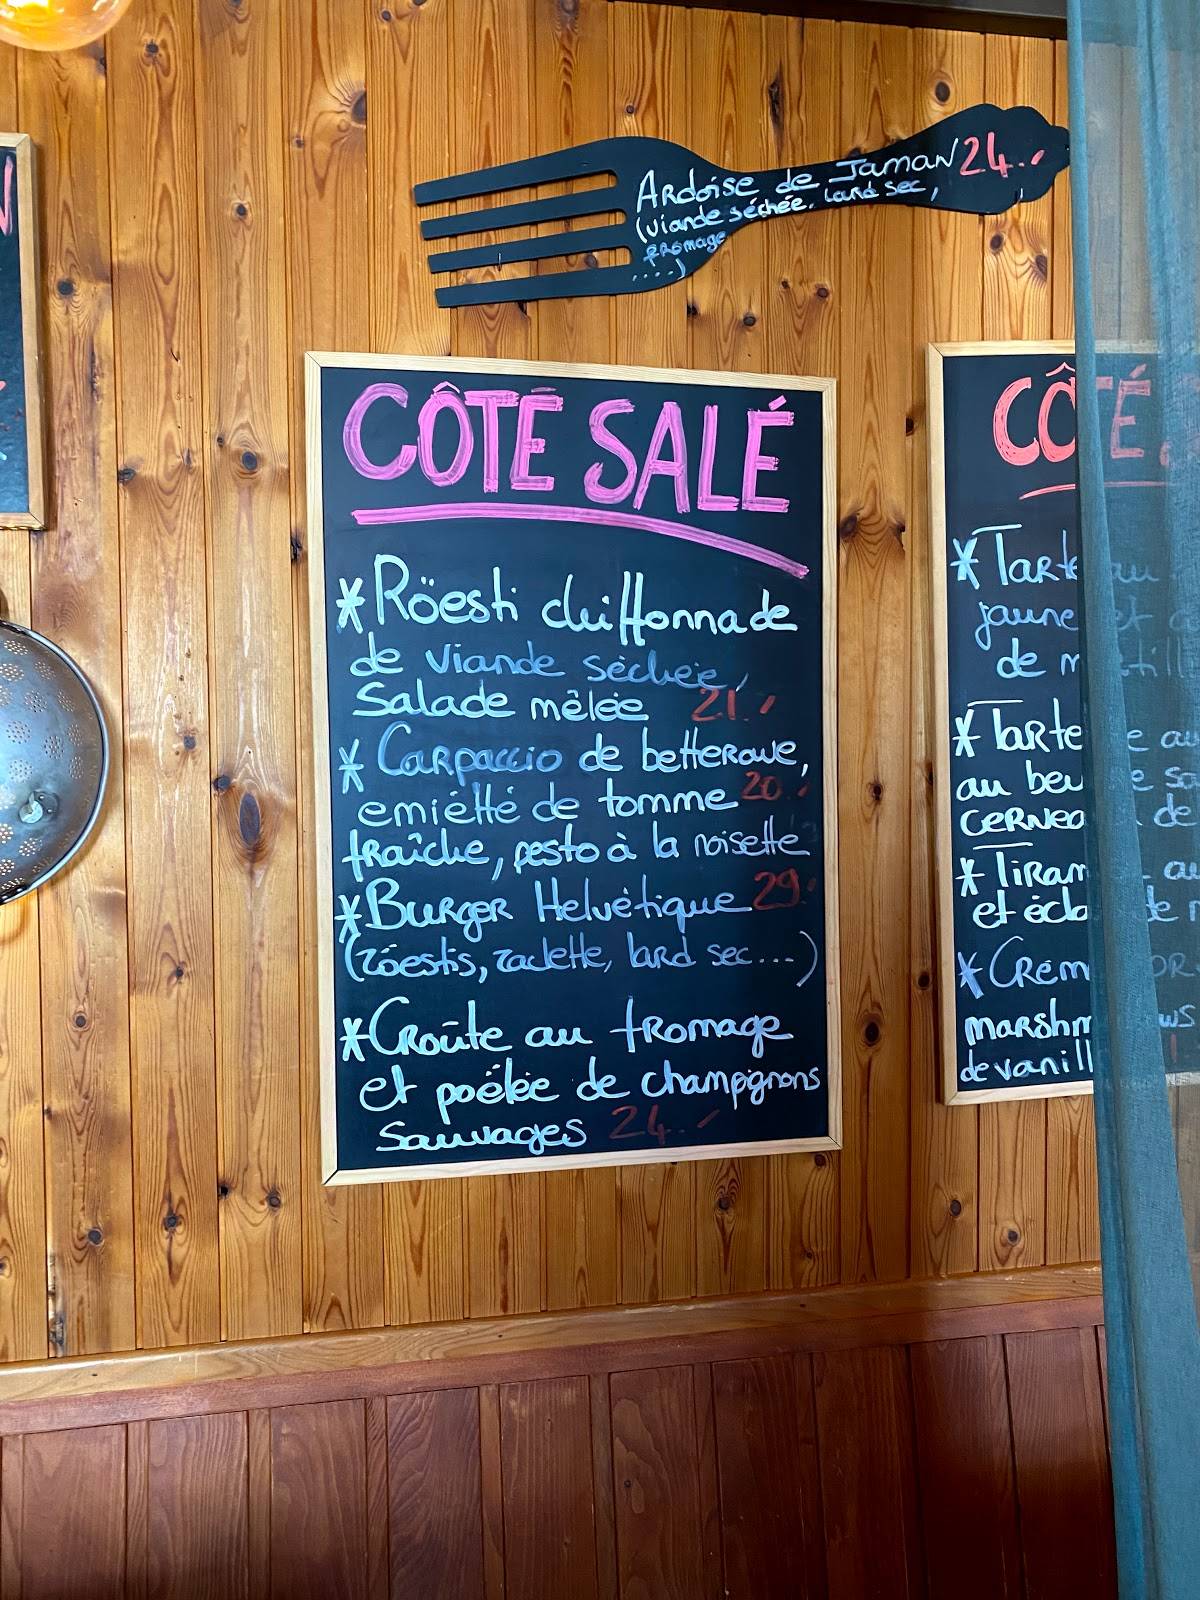 ARDOISE de JAMAN 24.-
(viande séchée, lard sec,
fromage
....)
CÔTÉ SALÉ
* Röesti chiffonnade
de viande séchée,
Salade mêlée 21.-
* Carpaccio de betterave,
emiétté de tomme 20.-
fraîche, pesto à la noisette
* Burger Helvétique 29.-
(röestis, raclette, lard sec...)
* Croûte au fromage
et poêlée de champignons
Sauvages 24.-
CÔTÉ
* Tarte au
jaune et
de
* Tarte au
au
cernea de
* Tiram au
et écla de
* Crèm
marshm ws
de vanill